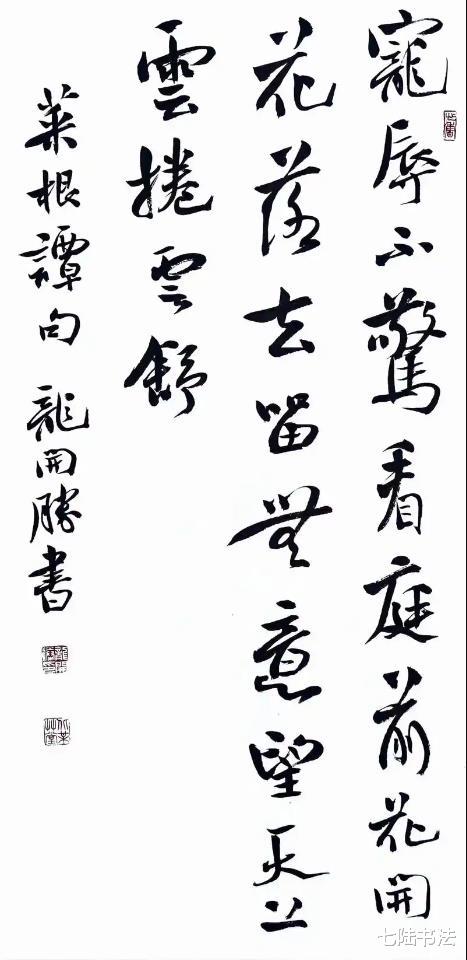 寵辱不驚看庭前花開
花落去留無意望天上
雲捲雲舒
菜根譚句 龍開勝書
七陆书法